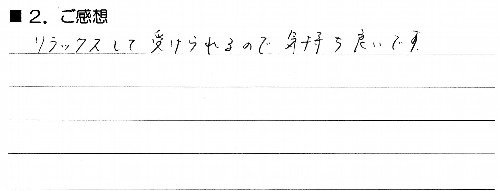 ■ 2. ご感想
リラックスして受けられるので気持ち良いです